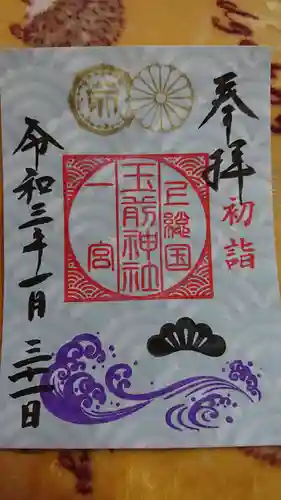 奉拝
初詣
上総国
玉前神社
一宮
令和三年一月三十一日